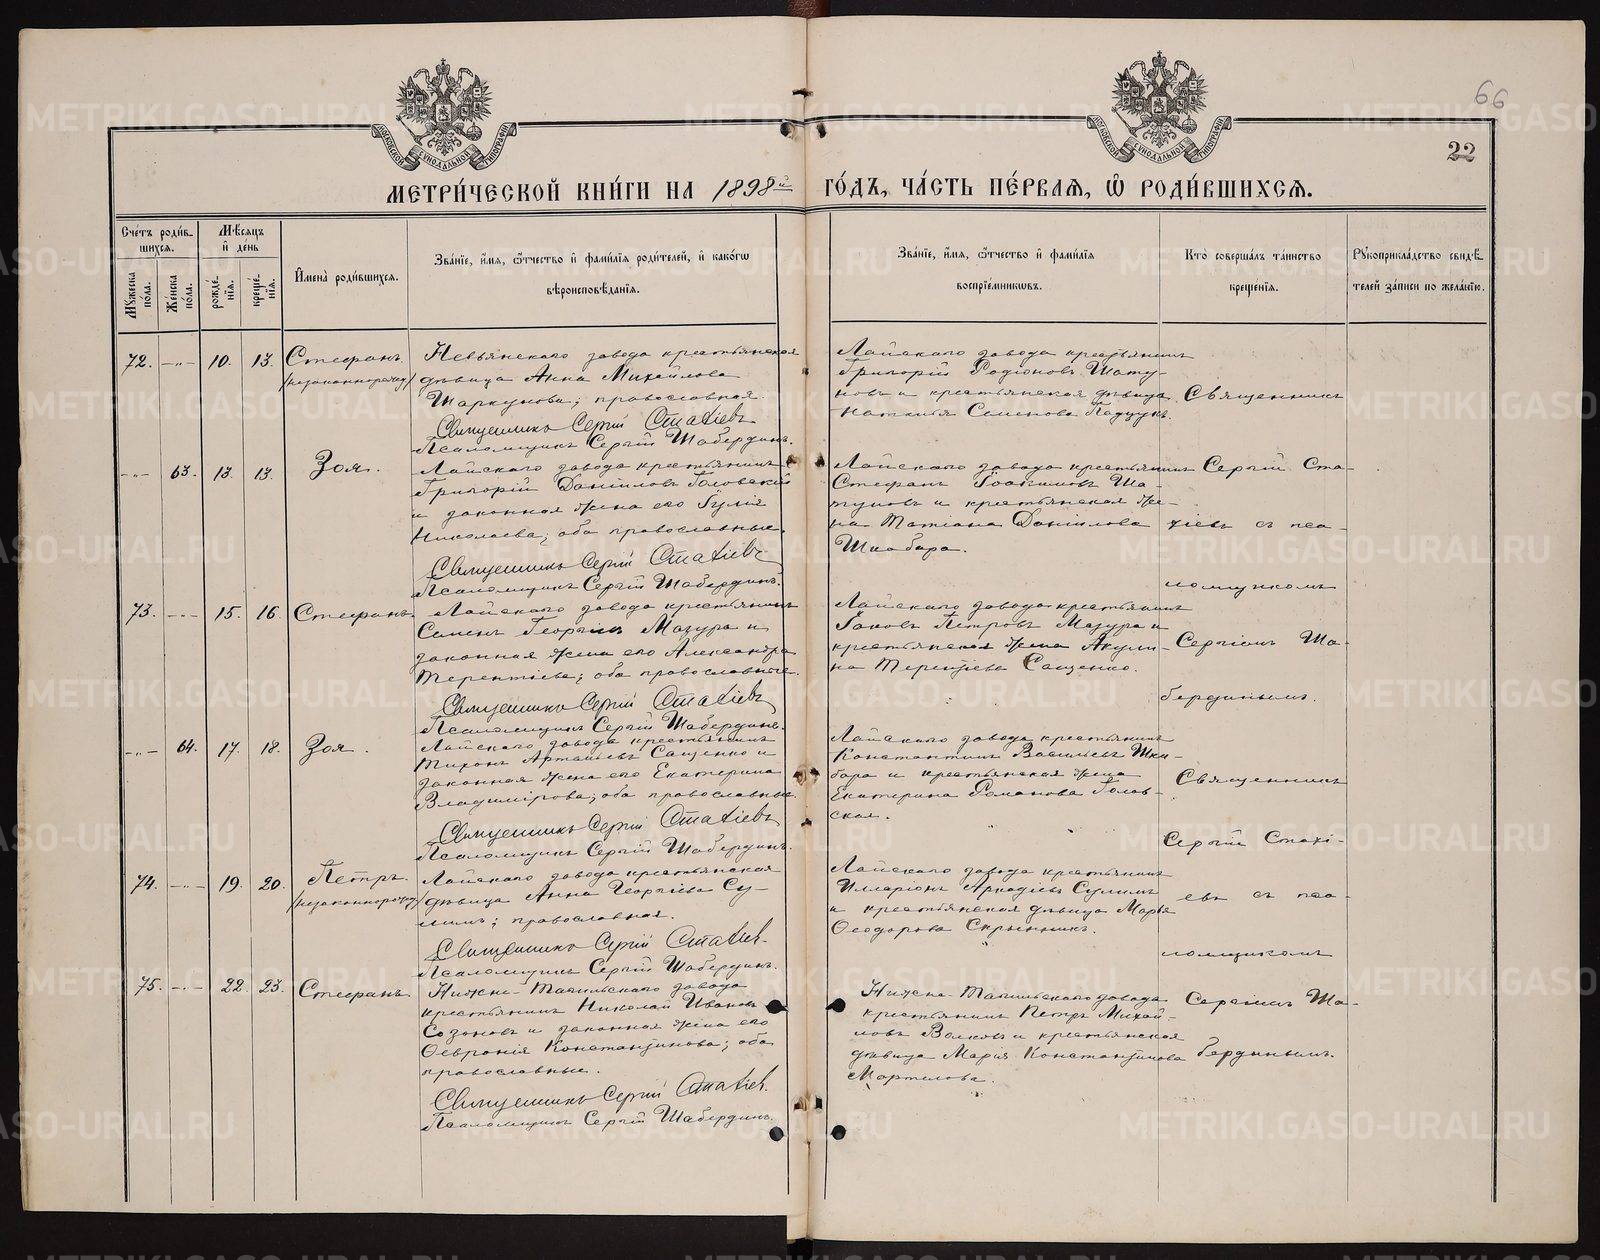 66
22
МЕТРИ́ЧЕСКОЙ КНИ́ГИ НА 1898й ГО́ДЪ, ЧА́СТЬ ПЕ́РВАЯ, Ѽ РОДИ́ВШИХСѦ.
Сче́тъ роди́в-
шихся.
Мꙋжеска
по́ла.
Же́нска
по́ла.
Мѣ́сяцъ
и҆ де́нь
рожде́-
нїя.
креще́-
нїя.
И҆мена̀ роди́вшихся.
Зва́нїе, и҆́мя, ѻ҆́тчество и҆ фами́лїя роди́телей, и҆ како́гѡ
вѣроисповѣ́данїя.
Зва́нїе, и҆́мя, ѻ҆́тчество и҆ фами́лїя
воспрїе́мникѡвъ.
Кто̀ соверша́лъ та́инство
креще́нїя.
Рꙋкоприкла́дство свидѣ́-
телей за́писи по жела́нїю.
72. -"- 10. 13. Стефанъ
/незаконнорожд/
Невьянскаго завода крестьянская
дѣвица Анна Михайлова
Шаркунова; православная.
Священникъ Сергій Стахіевъ
Псаломщикъ Сергій Шабердинъ.
Лайскаго завода крестьянинъ
Григорій Родіоновъ Шату-
новъ и крестьянская дѣвица
Наталія Семенова
-"- 63. 13. 13. Зоя.
Лайскаго завода крестьянинъ
Григорій Даніиловъ Головской
и законная жена его Іулія
Николаева; оба православные.
Священникъ Сергій Стахіевъ
Псаломщикъ Сергій Шабердинъ.
Лайскаго завода крестьянинъ
Стефанъ Іоакимовъ Ша-
туновъ и крестьянская же-
на Татіана Даніилова
Шкабара.
73. -"- 15. 16. Стефанъ
Лайскаго завода крестьянинъ
Семенъ Георгіевъ Мазура и
законная жена его Александра
Терентіева; оба православные.
Священникъ Сергій Стахіевъ
Псаломщикъ Сергій Шабердинъ.
Лайскаго завода крестьянинъ
Іаковъ Петровъ Мазура и
крестьянская жена Акули-
на Терентіева Сащенко.
-"- 64. 17. 18. Зоя.
Лайскаго завода крестьянинъ
Тихонъ Артемьевъ Сащенко и
законная жена его Екатерина
Владимірова; оба православные.
Священникъ Сергій Стахіевъ
Псаломщикъ Сергій Шабердинъ.
Лайскаго завода крестьянинъ
Константинъ Васильевъ Шка-
бара и крестьянская жена
Екатерина Романова Голов-
ская.
74. -"- 19. 20. Петръ
/незаконнорожд/
Лайскаго завода крестьянская
дѣвица Анна Георгіева Су-
лимъ; православная.
Священникъ Сергій Стахіевъ
Псаломщикъ Сергій Шабердинъ.
Лайскаго завода крестьянинъ
Иларіонъ Аркадіевъ Сулимъ
и крестьянская дѣвица Марья
Ѳеодорова Скрынникъ.
75. -"- 22. 23. Стефанъ
Нижне-Тагильскаго завода
крестьянинъ Николай Ивановъ
Созоновъ и законная жена его
Ѳевронія Константинова; оба
православные.
Священникъ Сергій Стахіевъ
Псаломщикъ Сергій Шабердинъ.
Нижне-Тагильскаго завода
крестьянинъ Петръ Михай-
ловъ Волковъ и крестьянская
дѣвица Марія Константинова
Мартелова.
Священникъ
Сергій Ста-
хіевъ съ пса-
ломщикомъ
Сергіемъ Ша-
бердинымъ.
Священникъ
Сергій Стахі-
евъ съ пса-
ломщикомъ
Сергіемъ Ша-
бердинымъ.
METRIKI.GASO-URAL.RU